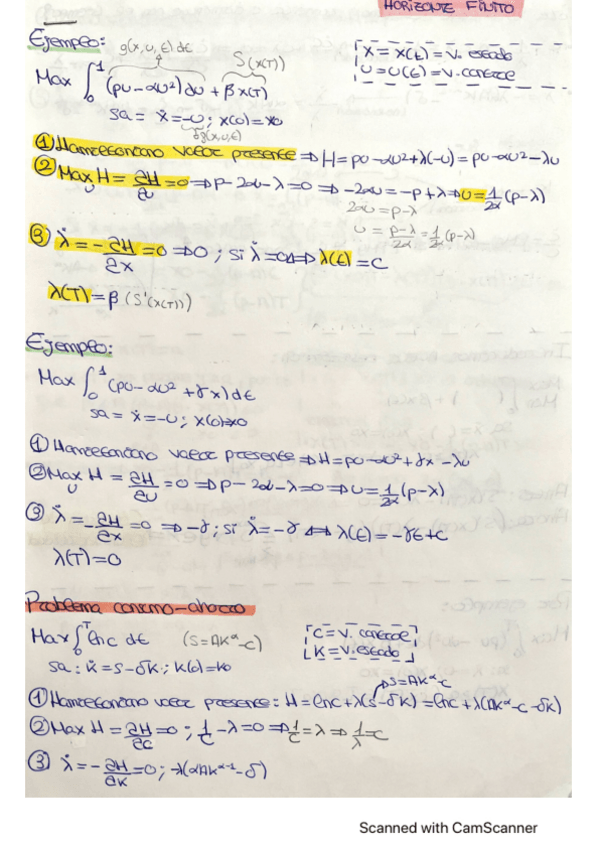 HORIZONTE FINITO
Ejemplo: g(x,u,t)dt S(x(T))
Max ∫₀¹ (pu - αu²)du + βx(T)
x = x(t) = v. estado
u = u(t) = v. control
sa = ẋ = -u; x(0) = x0
f(x,u,t)
① Hamiltoniano valor presente ⇒ H = pu - αu² + λ(-u) = pu - αu² - λu
② Max H = ∂H/∂u = 0 ⇒ p - 2αu - λ = 0 ⇒ -2αu = -p + λ ⇒ u = 1/2α (p - λ)
u
2αu = p - λ
u = p-λ/2α = 1/2α (p - λ)
③ λ̇ = -∂H/∂x = 0 ⇒ 0; si λ̇ = 0 ⇒ λ(t) = C
λ(T) = β (S'(x(T)))
Ejemplo:
Max ∫₀¹ (pu - αu² + γx)dt
sa = ẋ = -u; x(0) = x0
① Hamiltoniano valor presente ⇒ H = pu - αu² + γx - λu
② Max H = ∂H/∂u = 0 ⇒ p - 2αu - λ = 0 ⇒ u = 1/2α (p - λ)
u
③ λ̇ = -∂H/∂x = 0 ⇒ -γ; si λ̇ = -γ ⇒ λ(t) = -γt + C
λ(T) = 0
Problema consumo-ahorro
Max ∫₀ᵀ lnc dt (S = AKᵅ - C)
C = v. control
K = v. estado
sa: k̇ = s - δk; k(0) = k0
s = AKᵅ - C
① Hamiltoniano valor presente: H = lnc + λ(s - δk) = lnc + λ(AKᵅ - c - δk)
② Max H = ∂H/∂c = 0; 1/c - λ = 0 ⇒ 1/c = λ ⇒ 1/λ = c
③ λ̇ = -∂H/∂k = 0; -λ(αAKᵅ⁻¹ - δ)
Scanned with CamScanner